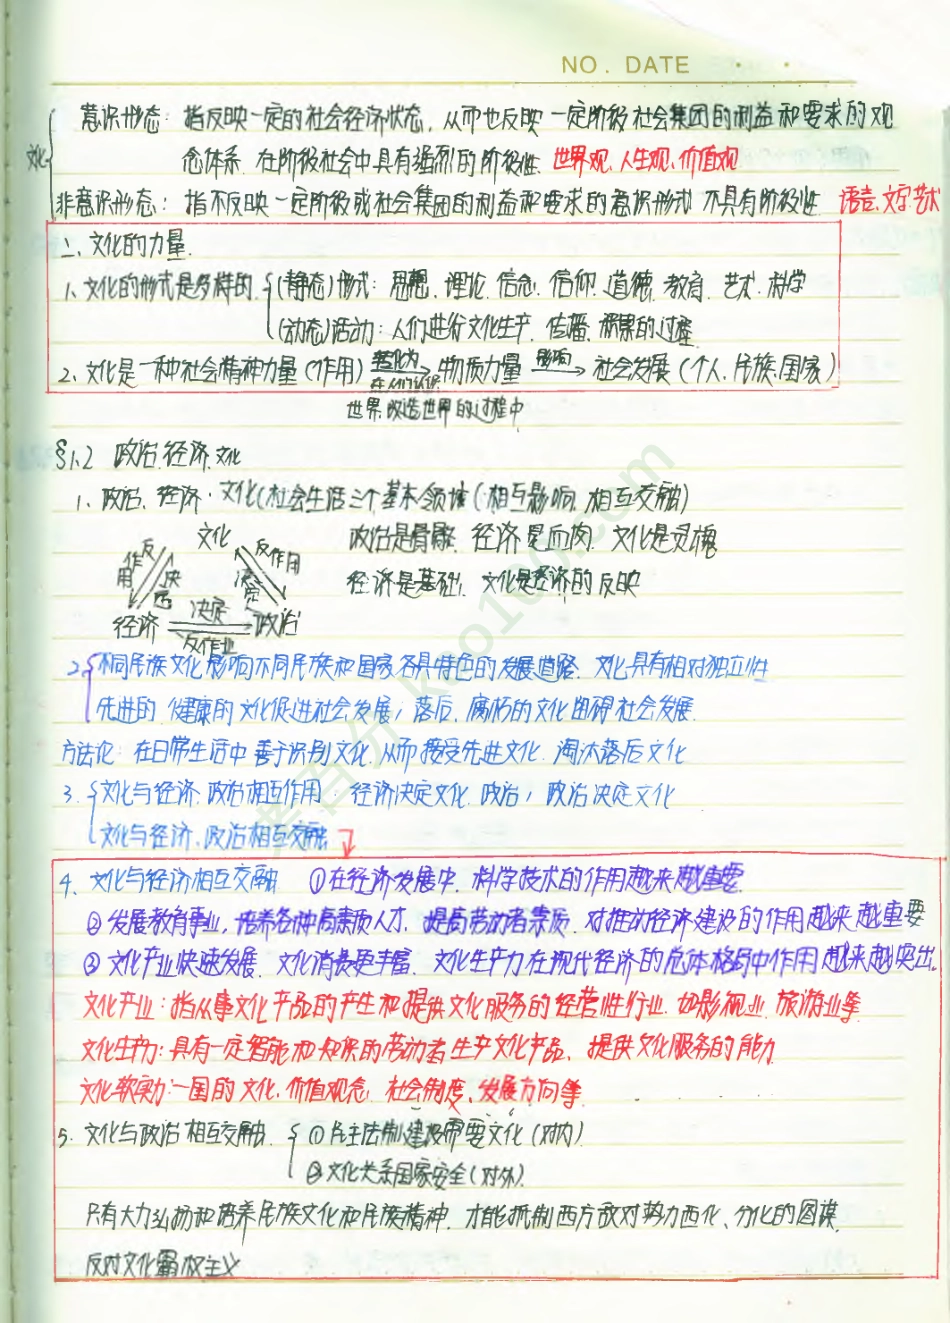 NO. DATE
意识形态：指反映一定的社会经济状态，从而也反映一定阶级社会集团的利益和要求的观
文化
念体系．在阶级社会中具有强烈的阶级性．世界观、人生观、价值观
非意识形态：指不反映一定阶级或社会集团的利益和要求的意识形式．不具有阶级性．语言、文字、艺术
二、文化的力量．
1、文化的形式是多样的．(静态)形式：思想、理论、信念、信仰、道德、教育、艺术、科学
(动态)活动：人们进行文化生产、传播、积累的过程
2、文化是一种社会精神力量（作用）转化为→物质力量 影响→社会发展（个人、民族、国家）
在人们认识
世界、改造世界的过程中
§1.2 政治、经济、文化
1、政治、经济、文化(社会生活三个基本领域(相互影响，相互交融)
文化 政治是骨骼，经济是血肉，文化是灵魂
反作用 决定 决定 反作用
经济是基础，文化是经济的反映
经济 决定 政治
反作业
2、不同民族文化影响不同民族和国家各具特色的发展道路．文化具有相对独立性
先进的、健康的文化促进社会发展；落后、腐朽的文化阻碍社会发展．
方法论：在日常生活中善于识别文化，从而接受先进文化，淘汰落后文化
3．文化与经济、政治相互作用 经济决定文化、政治；政治决定文化
文化与经济、政治相互交融
4、文化与经济相互交融 ①在经济发展中，科学技术的作用越来越重要．
②发展教育事业，培养各种高素质人才，提高劳动者素质，对推动经济建设的作用越来越重要
③文化产业快速发展，文化消费更丰富，文化生产力在现代经济的总体格局中作用越来越突出．
文化产业：指从事文化产品的产生和提供文化服务的经营性行业．如影视业、旅游业等
文化生产力：具有一定智能和知识的劳动者生产文化产品、提供文化服务的能力
文化软实力：一国的文化、价值观念、社会制度、发展方向等
5．文化与政治相互交融．①民主法制建设需要文化（对内）．
②文化关系国家安全（对外）．
只有大力弘扬和培养民族文化和民族精神，才能抵制西方敌对势力西化、分化的图谋．
反对文化霸权主义
考百分 kao100.com